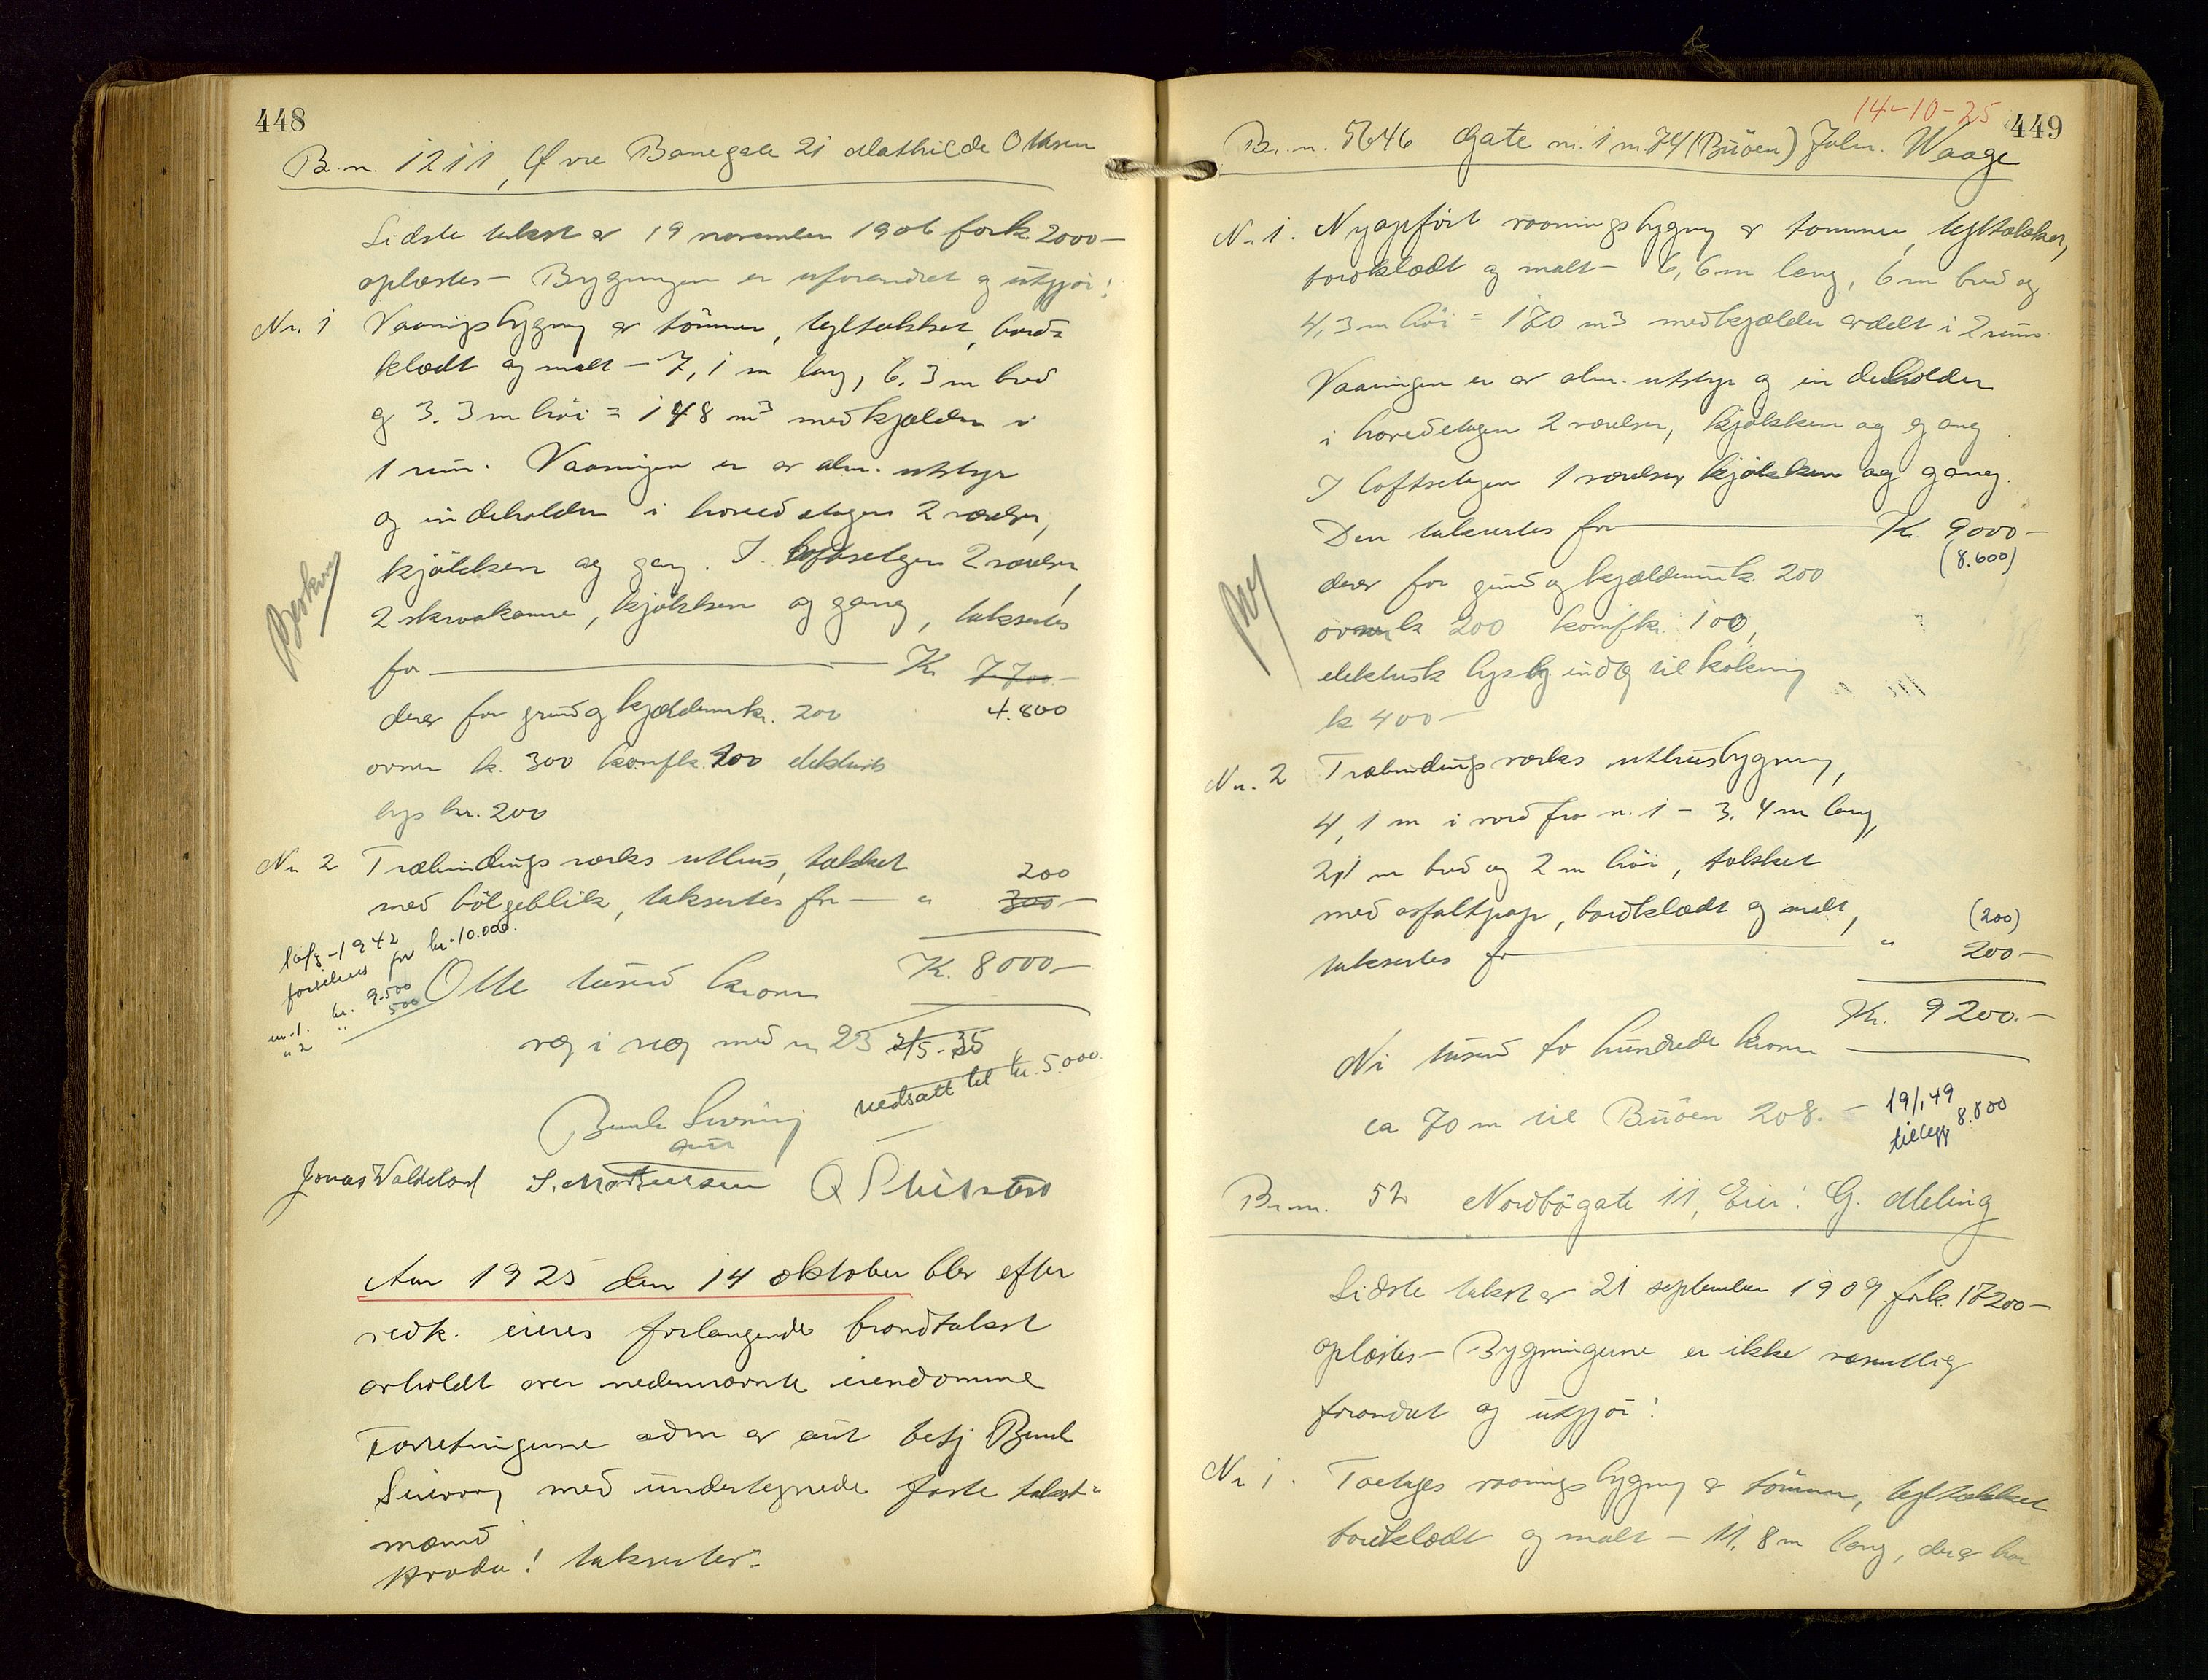 448
B.n. 1211, Øvre Banegate 21 Mathilde Olsen
Sidste takst av 19 november 1906 for k. 2000-
oplæstes - Bygningen er uforandret og utgjør:
Nr. 1 Vaaningsbygning av tömmer, tegltækket, bord-
klædt og malt - 7,1 m lang, 6.3 m bred
og 3.3 m höi = 148 m³ med kjælder i
1 rum. Vaaningen er av alm. utstyr
og indeholder i hovedetagen 2 værelser,
kjøkken og gang. I loftsetagen 2 værelser,
2 skraakamre, kjøkken og gang, takseres
for Kr 7700.-
4.800
derav for grund og kjældermur kr. 200
ovner k. 300 komf k. 100 elektrisk
lys kr. 200
Nr 2 Træbindingsverks uthus, tækket
med bölgeblik, takseres for - " 300-
200
1942
for kr. 10.000.
nr. 1. kr. 9.500
" 2 " 500
Kr. 8000.-
Otte tusind kroner
væg i væg med n 23 2/5-35
nedsatt til kr. 5.000.
aut
Jonas Waldeland S. Mortensen
Aar 1925 den 14 oktober blev efter
vedk. eieres forlangende brandtakst
avholdt over nedennævnte eiendomme
Forretningerne adm av aut betj Bernh
Sivering med undertegnede faste takst-
mænd
takserter:
14-10-25
449
Br.n. 5646 Gate nr. 1 nr. 74 (Buöen) Johs. Waage
Nr 1. Nyopfört vaaningsbygning av tømmer, tegltækket,
bordklædt og malt - 6,6 m lang, 6 m bred og
4,3 m höi = 170 m³ med kjælder avdelt i 2 rum.
Vaaningen er av alm. utstyr og indeholder
i hovedetagen 2 værelser, kjøkken og gang.
I loftsetagen 1 værelse, kjøkken og gang.
Den takseres for Kr. 9000-
(8.600)
Ny
derav for grund og kjældermur k. 200
ovner k 200 komf kr. 100,
elektrisk lys og indlæg til kokning
k 400-
Nr. 2 Træbindingsverks uthusbygning,
4,1 m i nord fra n. 1 - 3,4 m lang,
2,1 m bred og 2 m höi, tækket
med asfaltpap, bordklædt og malt,
(200)
takseres for " 200-
Kr. 9200.-
Ni tusind to hundrede kroner
ca 70 m til Buöen 208. -
19/1,49
tillegg 8.800
Br.n. 52 Nordbögate 11, Eier: G. Meling
Sidste takst av 21 september 1909 for k. 17200-
oplæstes - Bygningerne er ikke væsentlig
forandret og utgjör:
Nr 1. Toetages vaaningsbygning av tömmer, tegltækket
bordklædt og malt - 11,8 m lang, derav har